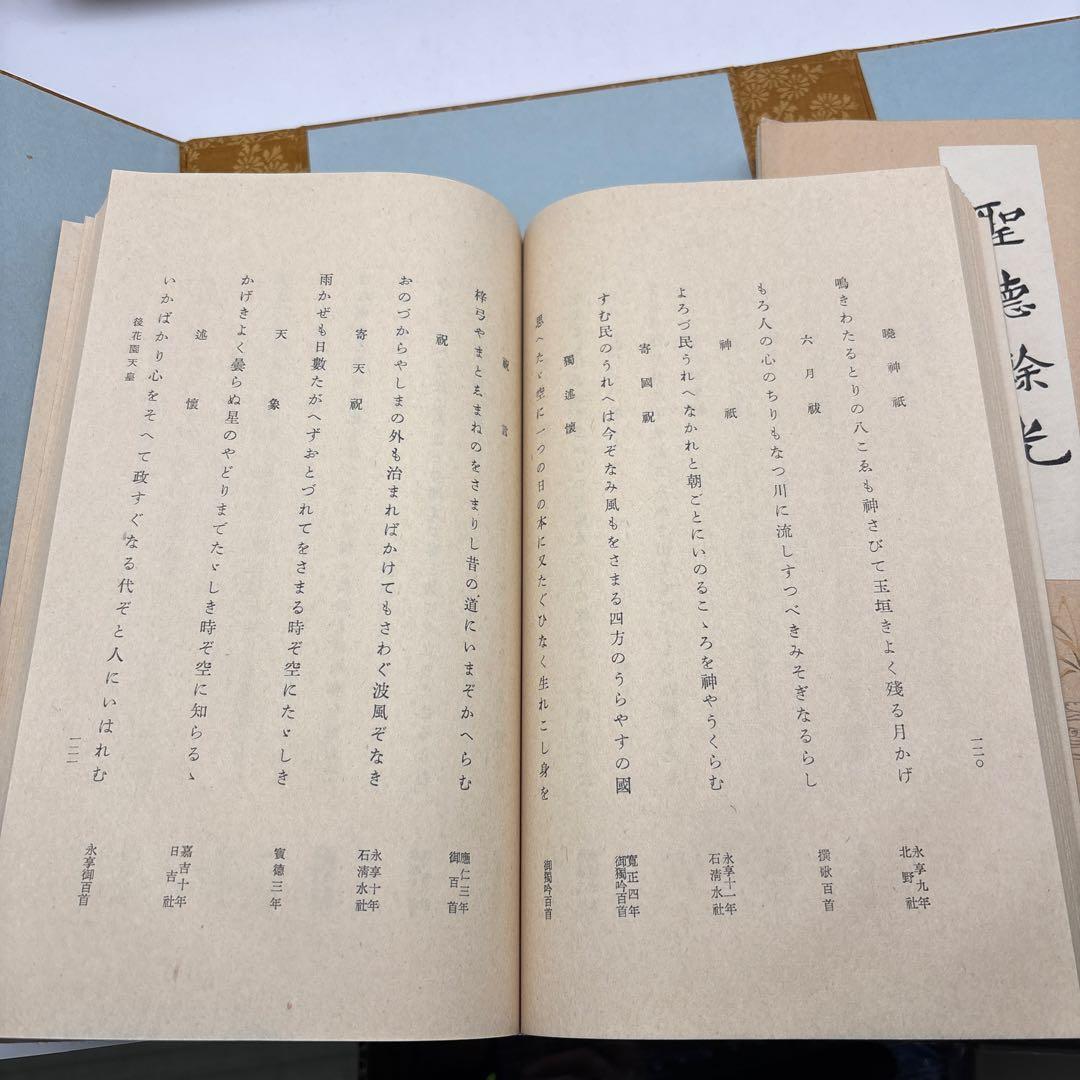 曉神祇
鳴きわたるとりの八こゑも神さびて玉垣きよく殘る月かげ
永享九年
北野社
六月祓
もろ人の心のちりもなつ川に流しすつべきみそぎなるらし
撰歌百首
神祇
よろづ民うれへなかれと朝ごとにいのるこゝろを神やうくらむ
永享十一年
石淸水社
寄國祝
すむ民のうれへは今ぞなみ風もをさまる四方のうらやすの國
寬正四年
御獨吟百首
獨述懷
思へたゞ空に一つの日の本に又たぐひなく生れこし身を
御獨吟百首
一二〇
祝言
梓弓やまとゑまねのをさまりし昔の道にいまぞかへらむ
應仁三年
御百首
祝
おのづからやしまの外も治まればかけてもさわぐ波風ぞなき
永享十年
石淸水社
寄天祝
雨かぜも日數たがへずおとづれてをさまる時ぞ空にたゞしき
寳德三年
天象
かげきよく曇らぬ星のやどりまでたゞしき時ぞ空に知らるゝ
嘉吉十年
日吉社
述懷
いかばかり心をそへて政すぐなる代ぞと人にいはれむ
永享御百首
後花園天皇
一二一
聖德餘光